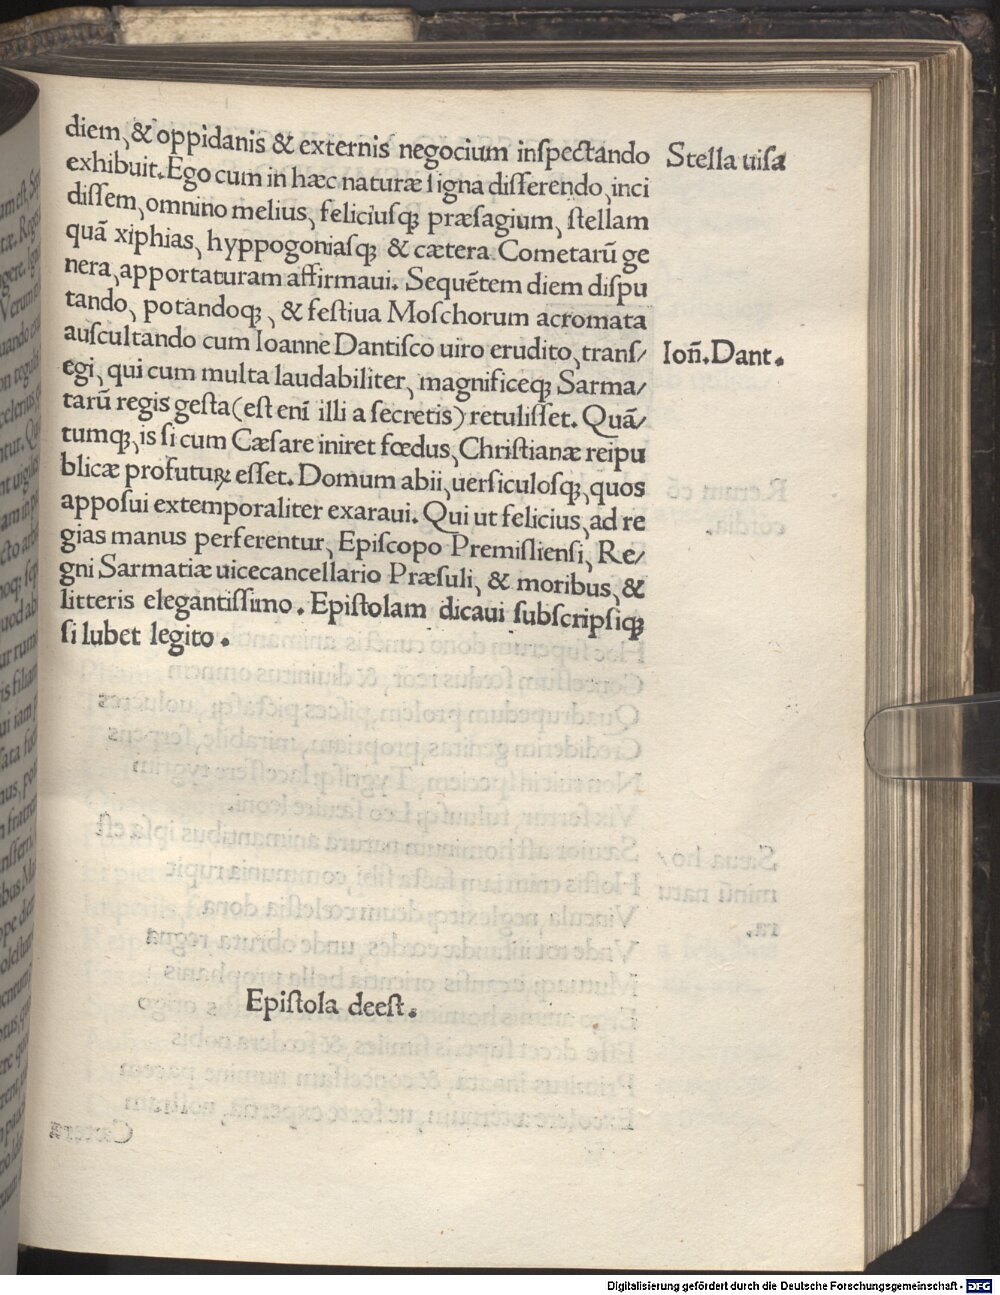 diem, & oppidanis & externis negocium inſpectando
Stella uiſa
exhibuit. Ego cum in hæc naturæ ſigna diſſerendo, inci
diſſem, omnino melius, feliciuſq; præſagium, ſtellam
quã xiphias, hyppogoniaſq; & cætera Cometarũ ge
nera, apportaturam affirmaui. Sequẽtem diem diſpu
tando, potandoq;, & feſtiua Moſchorum acromata
auſcultando cum Ioanne Dantiſco uiro erudito, tranſ/
Ioñ. Dant.
egi, qui cum multa laudabiliter, magnificeq; Sarma/
tarũ regis geſta (eſt enĩ illi a ſecretis) retuliſſet. Quã/
tumq;, is ſi cum Cæſare iniret fœdus, Chriſtianæ reipu
blicæ profuturꝝ eſſet. Domum abii, uerſiculoſq;, quos
appoſui extemporaliter exaraui. Qui ut felicius, ad re
gias manus perferentur, Epiſcopo Premiſlienſi, Re/
gni Sarmatiæ uicecancellario Præſuli, & moribus, &
litteris elegantiſſimo. Epiſtolam dicaui ſubſcripſiq;
ſi lubet legito.
Epiſtola deeſt.
Digitalisierung gefördert durch die Deutsche Forschungsgemeinschaft - DFG